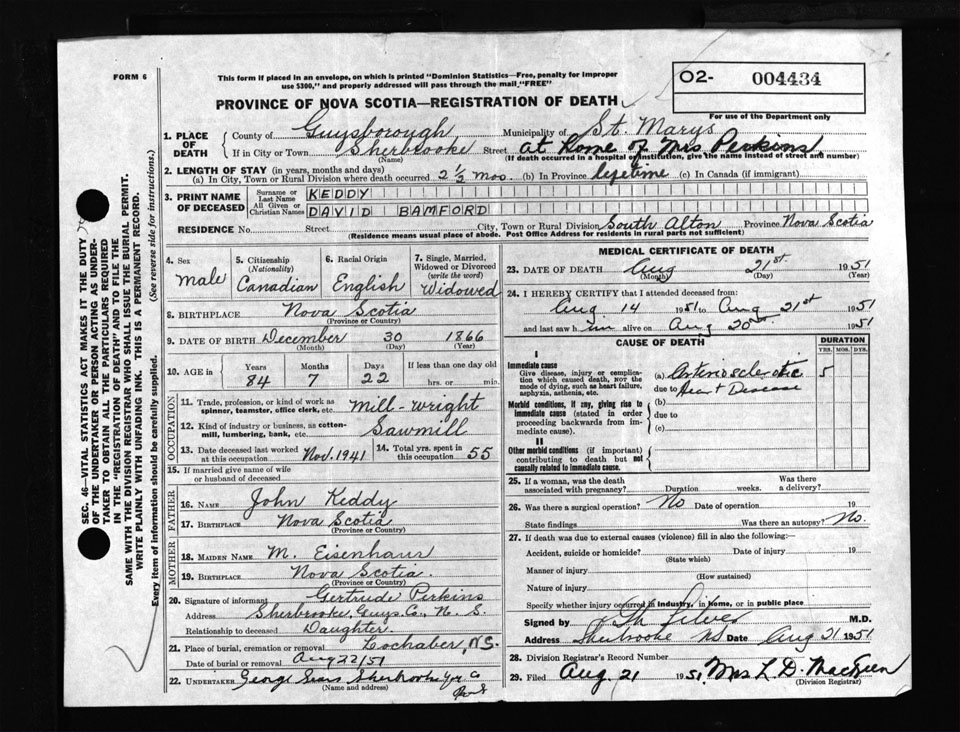 FORM 6
This form if placed in an envelope, on which is printed "Dominion Statistics—Free, penalty for improper use $300," and properly addressed will pass through the mail "FREE"
O2- 004434
For use of the Department only
PROVINCE OF NOVA SCOTIA—REGISTRATION OF DEATH
SEC. 46—VITAL STATISTICS ACT MAKES IT THE DUTY
OF THE UNDERTAKER OR PERSON ACTING AS UNDER-
TAKER TO OBTAIN ALL THE PARTICULARS REQUIRED
IN THE "REGISTRATION OF DEATH" AND TO FILE THE
SAME WITH THE DIVISION REGISTRAR WHO SHALL ISSUE THE BURIAL PERMIT.
WRITE PLAINLY WITH UNFADING INK. THIS IS A PERMANENT RECORD.
Every item of information should be carefully supplied. (See reverse side for instructions.)
1. PLACE OF DEATH
County of Guysborough Municipality of St. Marys
If in City or Town Sherbrooke Street at home of Mrs Perkins
(Name) (If death occurred in a hospital or institution, give the name instead of street and number)
2. LENGTH OF STAY (in years, months and days)
(a) In City, Town or Rural Division where death occurred 2 1/3 mos. (b) In Province lifetime (c) In Canada (if immigrant)
3. PRINT NAME OF DECEASED
Surname or Last Name KEDDY
All Given or Christian Names DAVID BAMFORD
RESIDENCE No. Street City, Town or Rural Division South Alton Province Nova Scotia
(Residence means usual place of abode. Post Office Address for residents in rural parts not sufficient)
4. Sex male
5. Citizenship (Nationality) Canadian
6. Racial Origin English
7. Single, Married, Widowed or Divorced (write the word) Widowed
8. BIRTHPLACE Nova Scotia
(Province or Country)
9. DATE OF BIRTH December 30 1866
(Month) (Day) (Year)
10. AGE in Years Months Days If less than one day old
84 7 22 hrs. or min.
OCCUPATION
11. Trade, profession or kind of work as spinner, teamster, office clerk, etc. Mill-wright
12. Kind of industry or business, as cotton-mill, lumbering, bank, etc. Sawmill
13. Date deceased last worked at this occupation Nov. 1941 14. Total yrs. spent in this occupation 55
15. If married give name of wife or husband of deceased
FATHER
16. NAME John Keddy
17. BIRTHPLACE Nova Scotia
(Province or Country)
MOTHER
18. MAIDEN NAME M. Eisenhaur
19. BIRTHPLACE Nova Scotia
(Province or Country)
20. Signature of informant Gertrude Perkins
Address Sherbrooke, Guys. Co., N. S.
Relationship to deceased Daughter
21. Place of burial, cremation or removal Lochaber, N.S.
Date of burial or removal Aug 22/51
22. UNDERTAKER George Sears Sherbrooke
(Name and address)
MEDICAL CERTIFICATE OF DEATH
23. DATE OF DEATH Aug 21st 1951
(Month) (Day) (Year)
24. I HEREBY CERTIFY that I attended deceased from:
Aug. 14 1951 to Aug 21st 1951
and last saw him alive on Aug 20th 1951
CAUSE OF DEATH
DURATION
YRS. MOS. DYS.
I
Immediate cause
Give disease, injury or complication which caused death, NOT the mode of dying, such as heart failure, asphyxia, asthenia, etc.
(a) Arteriosclerotic 5
due to Heart Disease
Morbid conditions, if any, giving rise to immediate cause (stated in order proceeding backwards from immediate cause).
(b)
due to
(c)
II
Other morbid conditions (if important) contributing to death but not causally related to immediate cause.
25. If a woman, was the death associated with pregnancy? Duration weeks. Was there a delivery?
26. Was there a surgical operation? No Date of operation 19
State findings Was there an autopsy? No.
27. If death was due to external causes (violence) fill in also the following:
Accident, suicide or homicide? Date of injury 19
(State which)
Manner of injury
(How sustained)
Nature of injury
Specify whether injury occurred in industry, in home, or in public place
Signed by Silver M.D.
Address Sherbrooke NS Date Aug 21 1951
28. Division Registrar's Record Number
29. Filed Aug. 21 1951 Mrs L D. MacKeen
(Division Registrar)